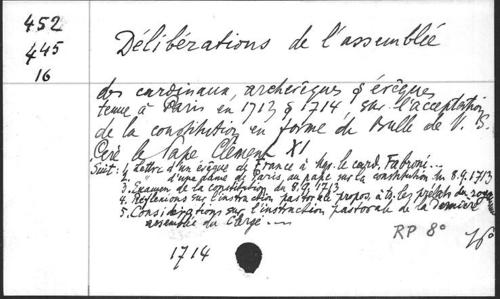 452
445
16
Délibérations de l'assemblée
des cardinaux, archevêques & évêques
tenue à Paris en 1713 & 1714, sur l'acceptation
de la constitution en forme de Bulle de N. S.
Père le Pape Clément XI
Suit: 1. Lettre d'un évêque de France à Mgr. le card. Fabroni...
2. " d'une dame de Paris, au pape sur la constitution du 8.9.1713
3. Examen de la constitution du 8.9.1713
4. Réflexions sur l'instruction pastorale propos. à ts. les prélats du
5. Considérations sur l'instruction pastorale de la dernière
assemblée du Clergé...
RP 8°
1714